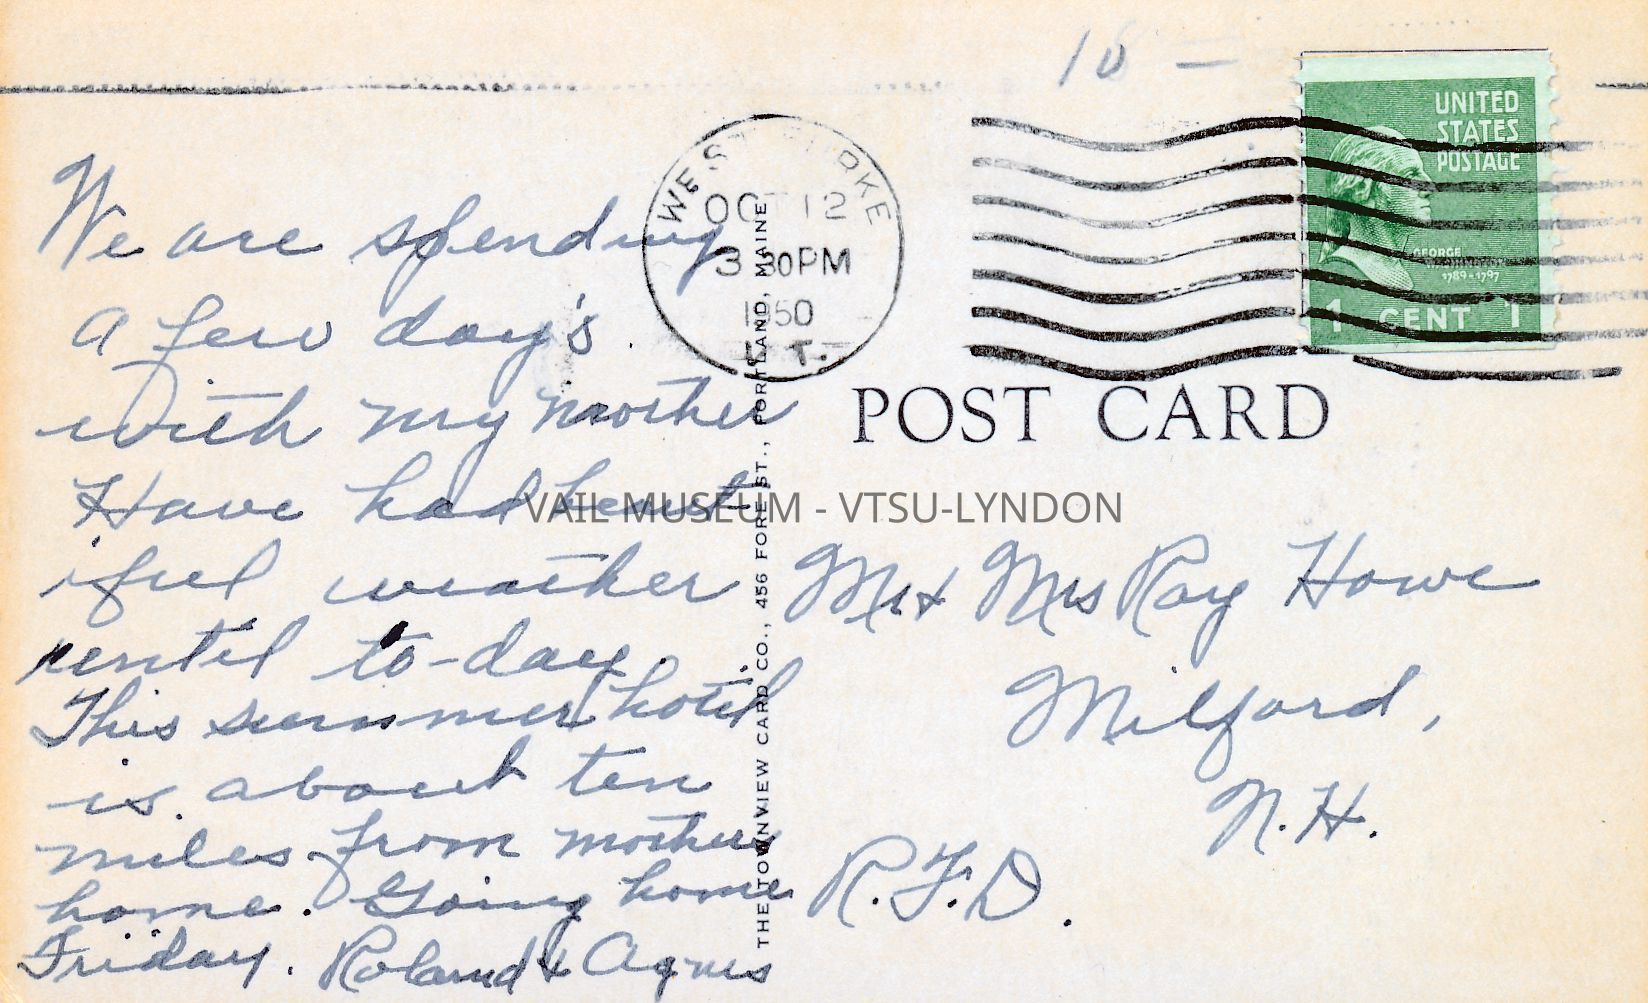 10 -
UNITED
STATES
POSTAGE
GEORGE
WASHINGTON
1789-1797
1 CENT 1
WEST BURKE
OCT 12
3 30PM
1950
VT.
POST CARD
We are spending
a few day's
with my mother
Have had beaut
iful weather
until to-day.
This summer hotel
is about ten
miles from mothers
home. Going home
Friday. Roland & Agnes
THE TOWNVIEW CARD CO., 456 FORE ST., PORTLAND, MAINE
VAIL MUSEUM - VTSU-LYNDON
Mr & Mrs Ray Howe
Milford,
N.H.
R.F.D.